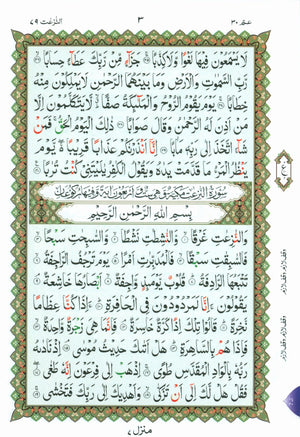 عم ٣٠ ٣ النزعت ٧٩
لَا يَسْمَعُونَ فِيهَا لَغْوًا وَّلَا كِذّٰبًا ۝ جَزَآءً مِّنْ رَّبِّكَ عَطَآءً حِسَابًا ۝
رَّبِّ السَّمٰوٰتِ وَالْاَرْضِ وَمَا بَيْنَهُمَا الرَّحْمٰنِ لَا يَمْلِكُوْنَ مِنْهُ
خِطَابًا ۝ يَوْمَ يَقُوْمُ الرُّوْحُ وَالْمَلٰٓئِكَةُ صَفًّا ۙ لَّا يَتَكَلَّمُوْنَ اِلَّا
مَنْ اَذِنَ لَهُ الرَّحْمٰنُ وَقَالَ صَوَابًا ۝ ذٰلِكَ الْيَوْمُ الْحَقُّ ۚ فَمَنْ
شَآءَ اتَّخَذَ اِلٰى رَبِّهٖ مَاٰبًا ۝ اِنَّآ اَنْذَرْنٰكُمْ عَذَابًا قَرِيْبًا ۚ يَّوْمَ
يَنْظُرُ الْمَرْءُ مَا قَدَّمَتْ يَدٰهُ وَيَقُوْلُ الْكٰفِرُ يٰلَيْتَنِيْ كُنْتُ تُرٰبًا ۝
بِسْمِ اللّٰهِ الرَّحْمٰنِ الرَّحِيْمِ
وَالنّٰزِعٰتِ غَرْقًا ۝ وَّالنّٰشِطٰتِ نَشْطًا ۝ وَّالسّٰبِحٰتِ سَبْحًا ۝
فَالسّٰبِقٰتِ سَبْقًا ۝ فَالْمُدَبِّرٰتِ اَمْرًا ۝ يَوْمَ تَرْجُفُ الرَّاجِفَةُ ۝
تَتْبَعُهَا الرَّادِفَةُ ۝ قُلُوْبٌ يَّوْمَئِذٍ وَّاجِفَةٌ ۝ اَبْصَارُهَا خَاشِعَةٌ ۝
يَقُوْلُوْنَ ءَاِنَّا لَمَرْدُوْدُوْنَ فِي الْحَافِرَةِ ۝ ءَاِذَا كُنَّا عِظَامًا
نَّخِرَةً ۝ قَالُوْا تِلْكَ اِذًا كَرَّةٌ خَاسِرَةٌ ۝ فَاِنَّمَا هِيَ زَجْرَةٌ وَّاحِدَةٌ ۝
فَاِذَا هُمْ بِالسَّاهِرَةِ ۝ هَلْ اَتٰىكَ حَدِيْثُ مُوْسٰى ۝ اِذْ نَادٰىهُ
رَبُّهٗ بِالْوَادِ الْمُقَدَّسِ طُوًى ۝ اِذْهَبْ اِلٰى فِرْعَوْنَ اِنَّهٗ طَغٰى ۝
فَقُلْ هَلْ لَّكَ اِلٰٓى اَنْ تَزَكّٰى ۝ وَاَهْدِيَكَ اِلٰى رَبِّكَ فَتَخْشٰى ۝
منزل ٧